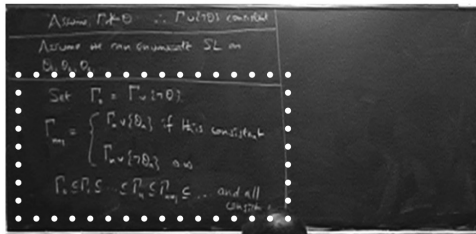 Assume Γ⊬θ ∴ Γ∪{¬θ} consistent
Assume we can enumerate SL as
θ₁, θ₂, θ₃
Set Γ₀ = Γ∪{¬θ}
Γₙ₊₁ = { Γₙ∪{θₙ} if this consistent
Γₙ∪{¬θₙ} o.w.
Γ₀ ⊆ Γ₁ ⊆ ... ⊆ Γₙ ⊆ Γₙ₊₁ ⊆ ... and all